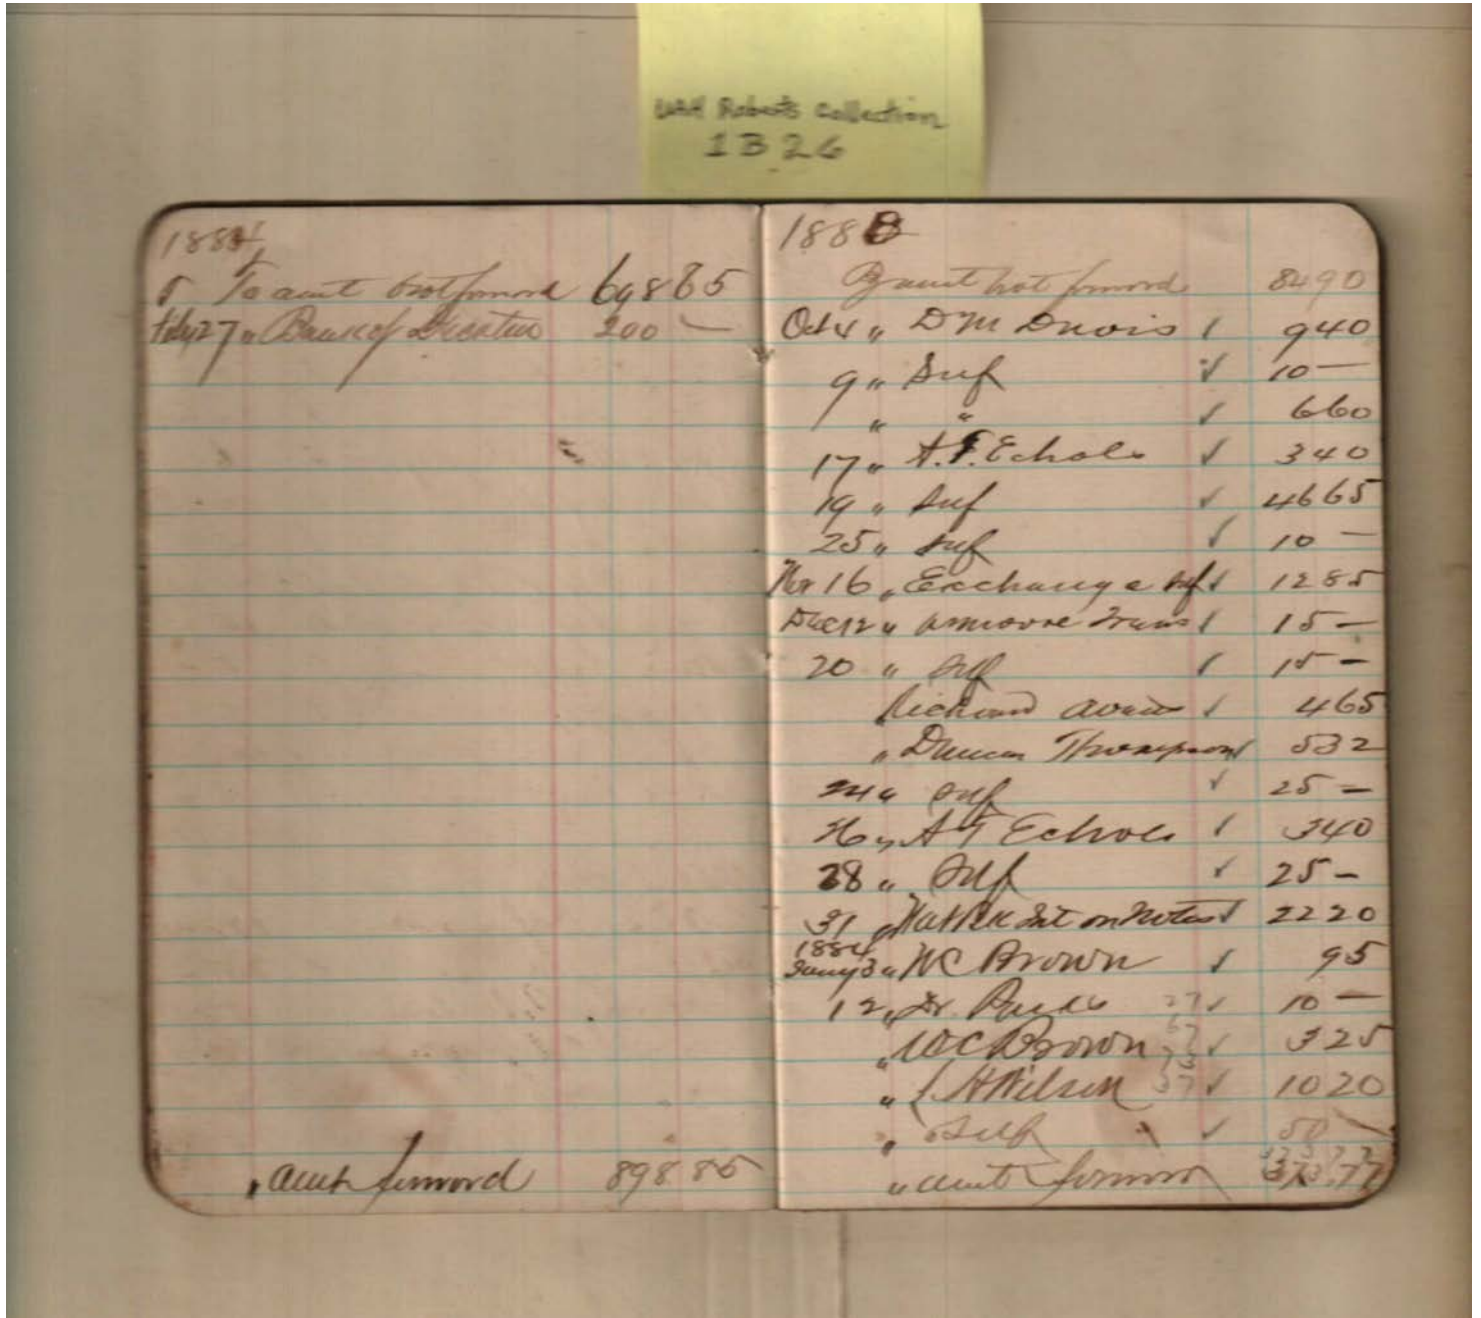 UAH Roberts Collection
1B26
1884
To amt brot forward 698 85
Feby 27 " Bank of Decatur 200 —
" amt forward 898 85
1883
By amt brot forward 84 90
Oct 4 " D M Davis ✓ 9 40
9 " Self ✓ 10 —
" " ✓ 6 60
17 " A. F. Echols ✓ 3 40
19 " Self ✓ 46 65
25 " Self ✓ 10 —
Nov 16 " Exchange Self ✓ 12 85
Dec 12 " Trans ✓ 15 —
20 " Self ✓ 15 —
Richard ✓ 4 65
" Duncan Thompson ✓ 5 32
24 " Self ✓ 25 —
26 " A F Echols ✓ 3 40
28 " Self ✓ 25 —
31 " Int on Notes ✓ 22 20
1884
Jany 3 " W C Brown ✓ 95
12 " Dr ✓ 10 —
" W C Brown ✓ 3 25
" J H Wilson ✓ 10 20
" Self ✓ 50 —
" amt forward 373.77